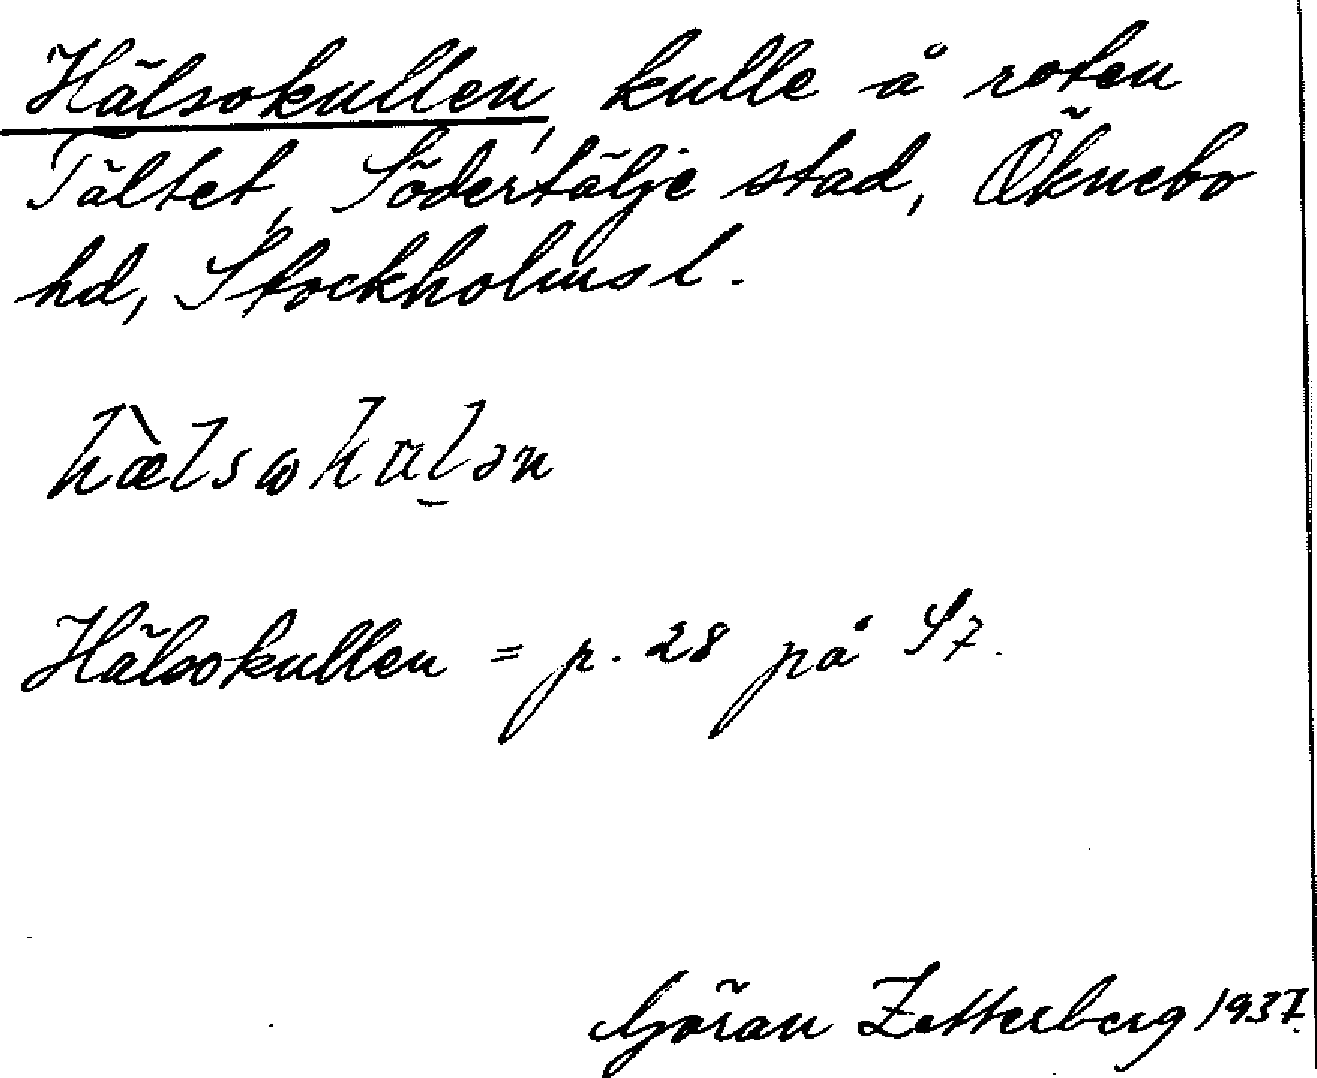 Hälsokullen, kulle å roten
Tältet, Södertälje stad, Öknebo
hd, Stockholms l.
hæ̀lsωkul̠ən
Hälsokullen = p. 28 på S7.
Göran Zetterberg 1937.